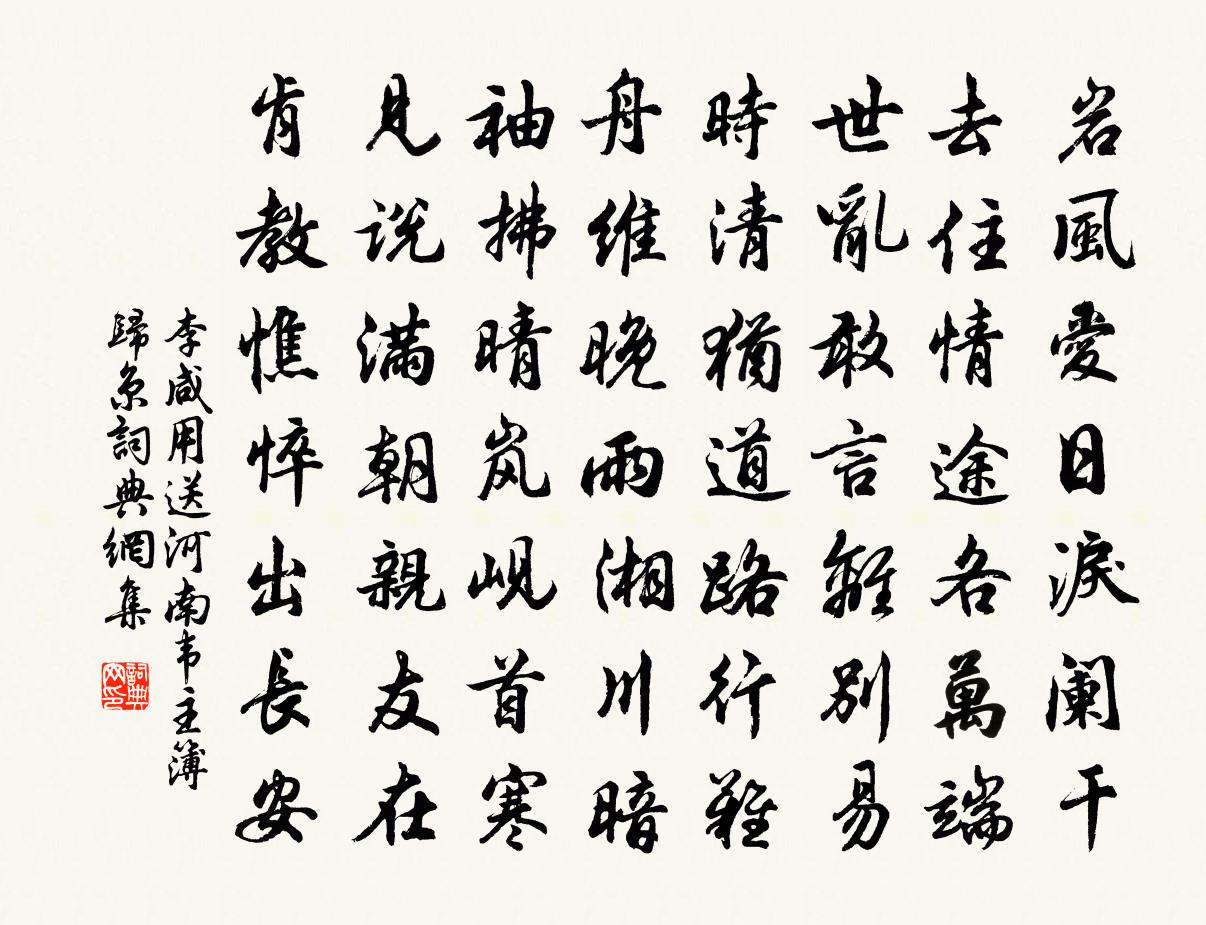 岩風愛日淚瀾干
去住情途各萬端
世亂敢言離別易
時清猶道路行難
舟維晚雨湘川暗
袖拂晴岚峴首寒
見説滿朝親友在
肯教憔悴出長安
李咸用送河南韦主簿
歸京詞典網集
詞典网印